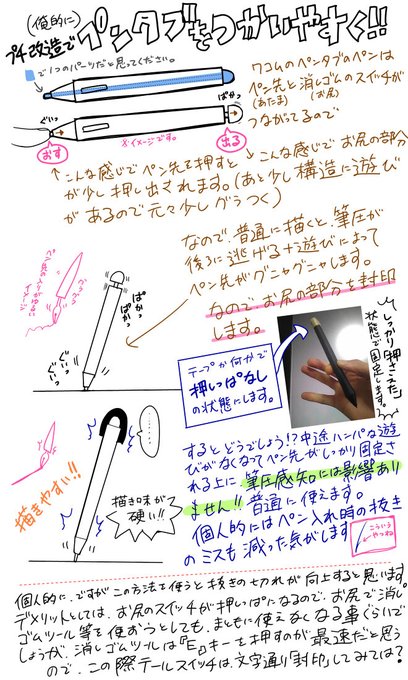 (俺的に)
プチ改造で
ペンタブをつかいやすく!!
■で1つのパーツだと思ってください。
ワコムのペンタブのペンは
ペン先と消しゴムのスイッチが
(あたま) (お尻)
つながってるので
ぱかっ
ぐいっ
おす
※イメージです。
出る
↑こんな感じでペン先で押すと
↓こんな感じでお尻の部分
が少し押し出されます。(あと少し構造に遊び
があるので元々少しグラつく)
なので、普通に描くと、筆圧が
後ろに逃げる+遊びによって
ペン先がグニャグニャします。
なので、お尻の部分を封印
します。
グラグラ
ぱかっ
ぱかっ
ぐいっ
ぐいっ
テープか何かで
押しっぱなし
の状態にします。
しっかり押さえた
状態で固定します。
するとどうでしょう!?中途ハンパな遊
びがなくなってペン先がしっかり固定さ
れる上に筆圧感知には影響あり
ません!!普通に使えます。
個人的にはペン入れ時の抜き
のミスも減った気がします
こういう
やつね
描きやすい!!
描き味がて
硬い!!
個人的に、ですがこの方法を使うと抜きの切れが向上すると思います。
デメリットとしては、お尻のスイッチが押しっぱになるので、お尻で消し
ゴムツール等を使おうとしても、まともに使えなくなる事ぐらいで
しょうが、消しゴムツールは『E』キーを押すのが最速だと思う
ので、この際テールスイッチは文字通り封印してみては?